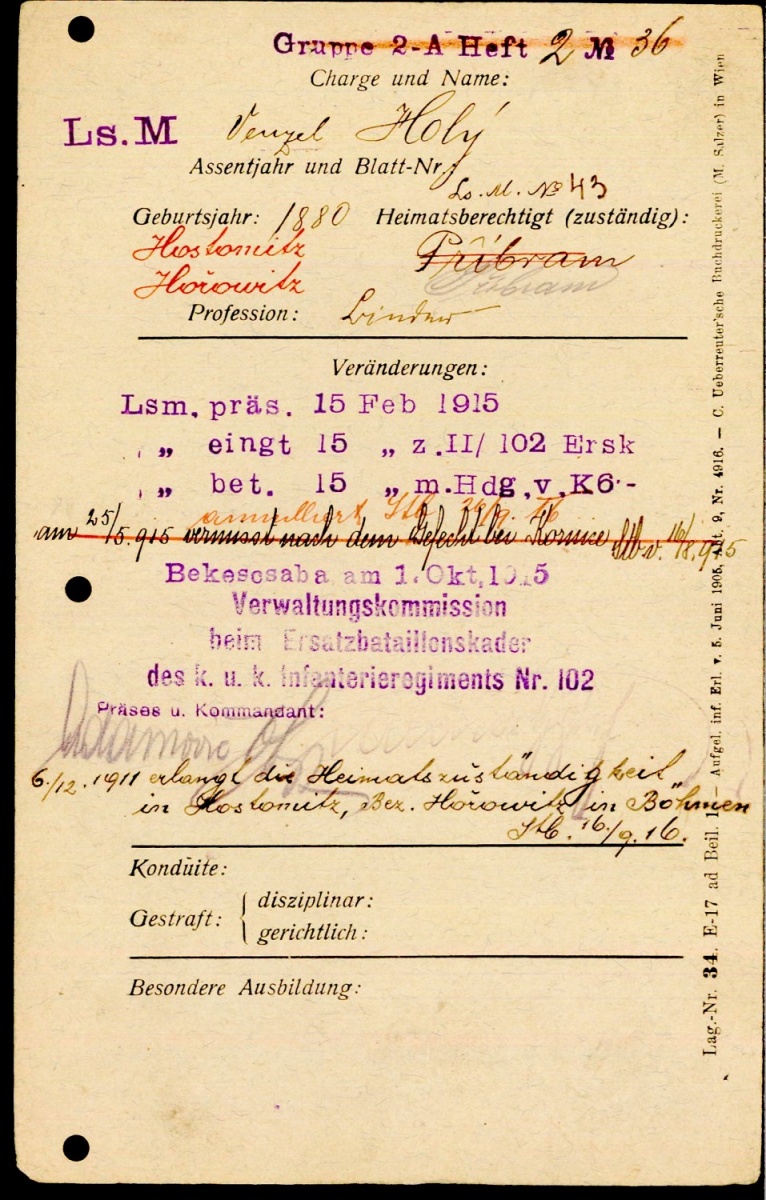 Gruppe 2-A Heft 2 № 36
Charge und Name:
Ls.M Venzel Holý
Assentjahr und Blatt-Nr.
Ls. M. № 43
Geburtsjahr: 1880 Heimatsberechtigt (zuständig):
Hostomitz Přibram
Hořowitz Přibram
Profession: Binder
Veränderungen:
Lsm. präs. 15 Feb 1915
„ eingt 15 „ z.II/102 Ersk
„ bet. 15 „ m.Hdg,v,K6·-
annulliert Stb. 9. 16
am 25/5. 915 vermisst nach dem Gefecht bei Kornice Stb v. 16/8. 915
Bekescsaba am 1. Okt, 1915
Verwaltungskommission
beim Ersatzbataillonskader
des k. u. k. Infanterieregiments Nr. 102
Präses u. Kommandant:
6./12. 1911 erlangt die Heimatszuständigkeit
in Hostomitz, Bez. Hořowitz in Böhmen
Stb. 16./9. 16.
Konduite:
Gestraft: { disziplinar:
gerichtlich:
Besondere Ausbildung:
Lag.-Nr. 34. E-17 ad Beil. 1 — Aufgel. inf. Erl. v. 5. Juni 1905, Abt. 9, Nr. 4916. — C. Ueberreuter'sche Buchdruckerei (M. Salzer) in Wien